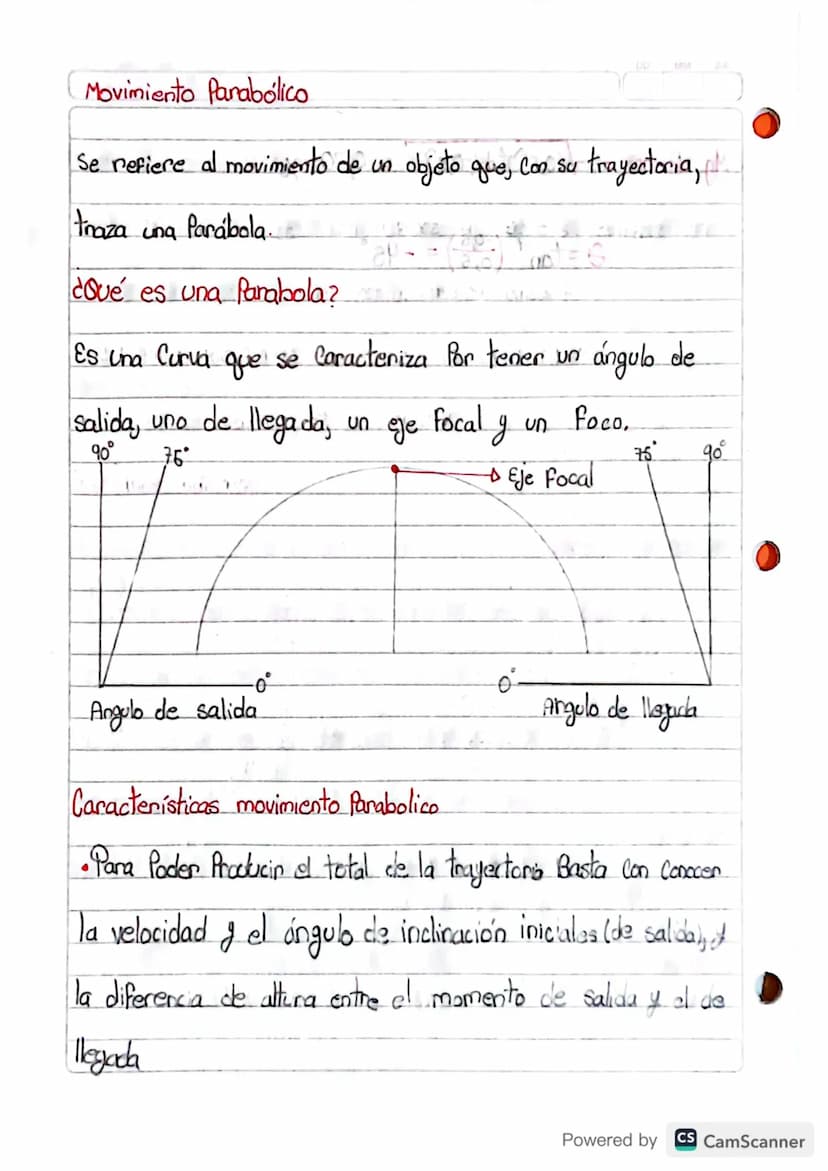 Movimiento Parabólico
Se refiere al movimiento de un objeto que, con su trayectoria,
traza una Parábola.
¿Qué es una Parabola?
Es una Curva que se Caracteriza Por tener un ángulo de
salida, uno de llegada, un eje focal y un foco.
90° 75° 75° 90°
Eje focal
0° 0°
Angulo de salida Angulo de llegada
Características movimiento Parabolico
• Para Poder Producir el total de la trayectoria Basta Con Conocer
la velocidad y el ángulo de inclinación iniciales (de salida), y
la diferencia de altura entre el momento de salida y el de
llegada
Powered by CS CamScanner